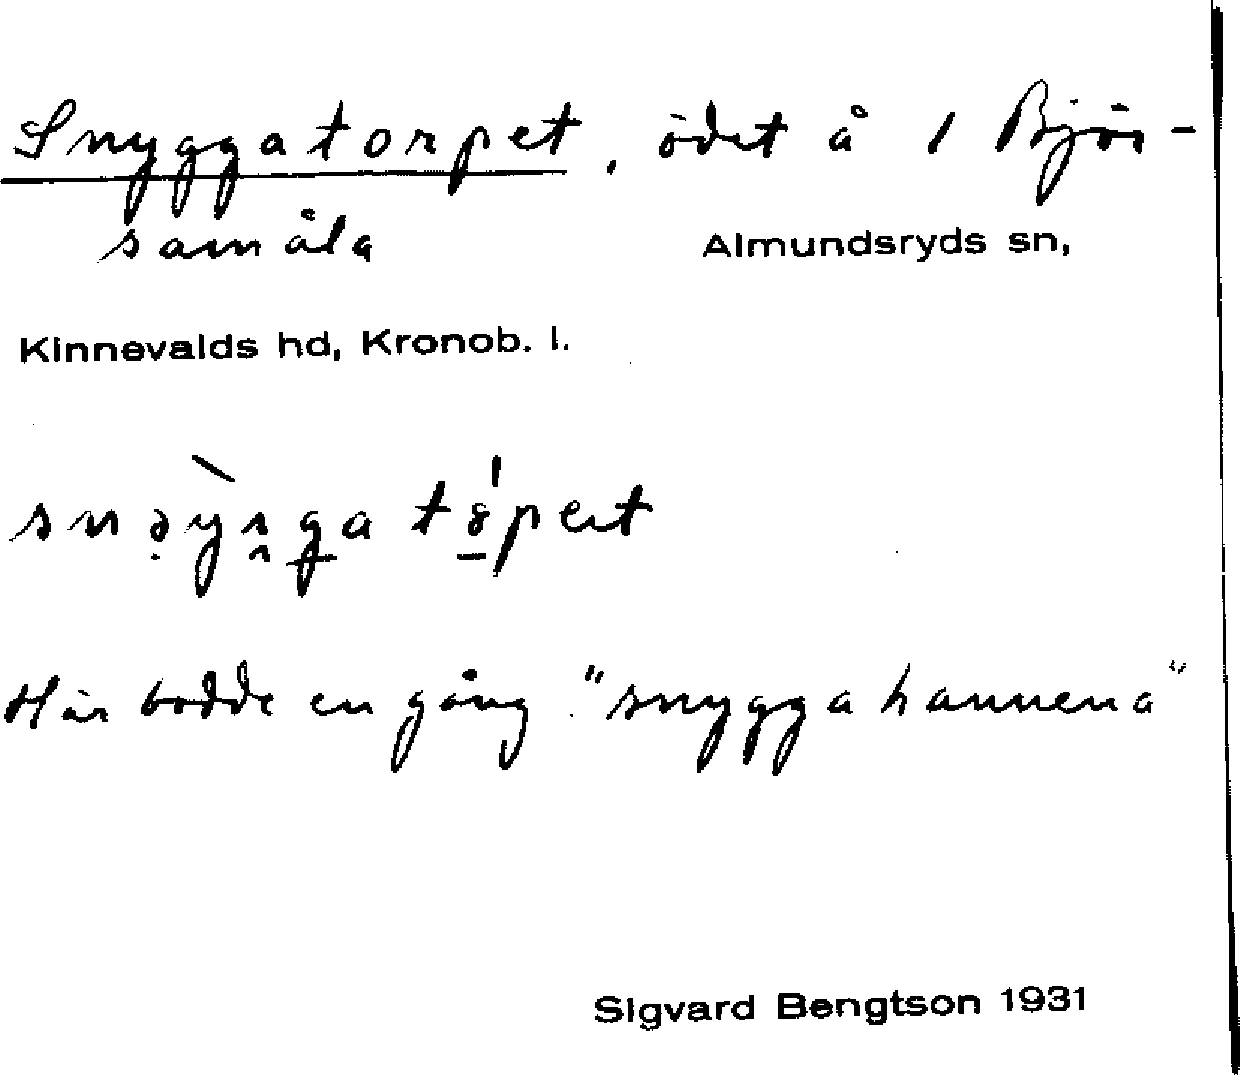 Snyggatorpet, ödet å 1 Björ-
samåla Almundsryds sn,
Kinnevalds hd, Kronob. l.
Här bodde en gång "snygga hannena"
Sigvard Bengtson 1931